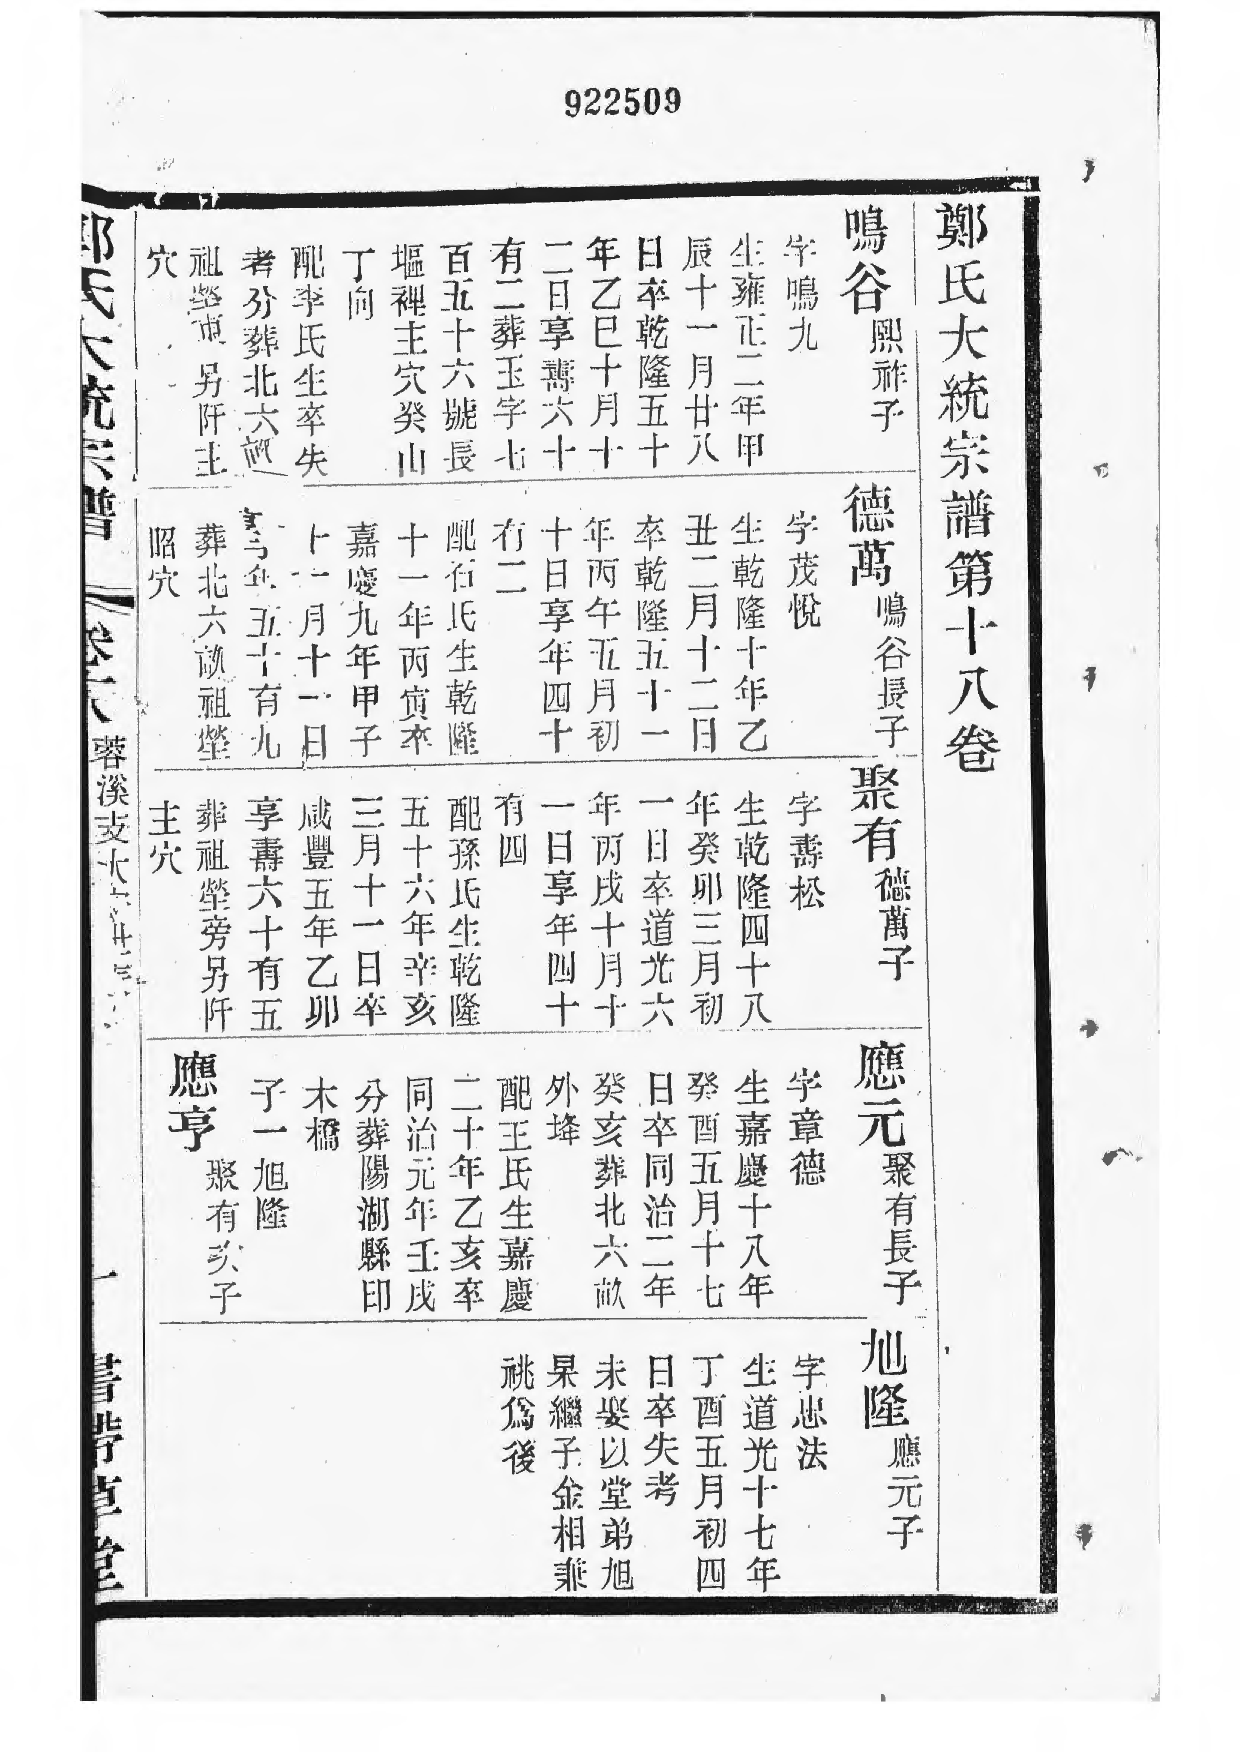 922509
鄭氏大統宗譜第十八卷
鳴谷
熙祚子
字鳴九
生雍正二年甲
辰十一月廿八
日卒乾隆五十
年乙巳十月十
二日享壽六十
有二葬玉字七
百五十六號長
塸裡主穴癸山
丁向
配李氏生卒失
考分葬北六畝
祖塋東另阡主
穴
德萬
鳴谷長子
字茂悅
生乾隆十年乙
丑二月十二日
卒乾隆五十一
年丙午五月初
十日享年四十
有二
配石氏生乾隆
十一年丙寅卒
嘉慶九年甲子
十一月十一日
享年五十有九
葬北六畝祖塋
昭穴
聚有
德萬子
字壽松
生乾隆四十八
年癸卯三月初
一日卒道光六
年丙戌十月十
一日享年四十
有四
配孫氏生乾隆
五十六年辛亥
三月十一日卒
咸豐五年乙卯
享壽六十有五
葬祖塋旁另阡
主穴
應元
聚有長子
字章德
生嘉慶十八年
癸酉五月十七
日卒同治二年
癸亥葬北六畝
外埄
配王氏生嘉慶
二十年乙亥卒
同治元年壬戌
分葬陽湖縣印
木橋
子一旭隆
應亨
聚有次子
旭隆
應元子
字忠法
生道光十七年
丁酉五月初四
日卒失考
未娶以堂弟旭
杲繼子金相兼
祧爲後
鄭氏大統宗譜
卷十八
蓉溪支大
一
書帶草堂